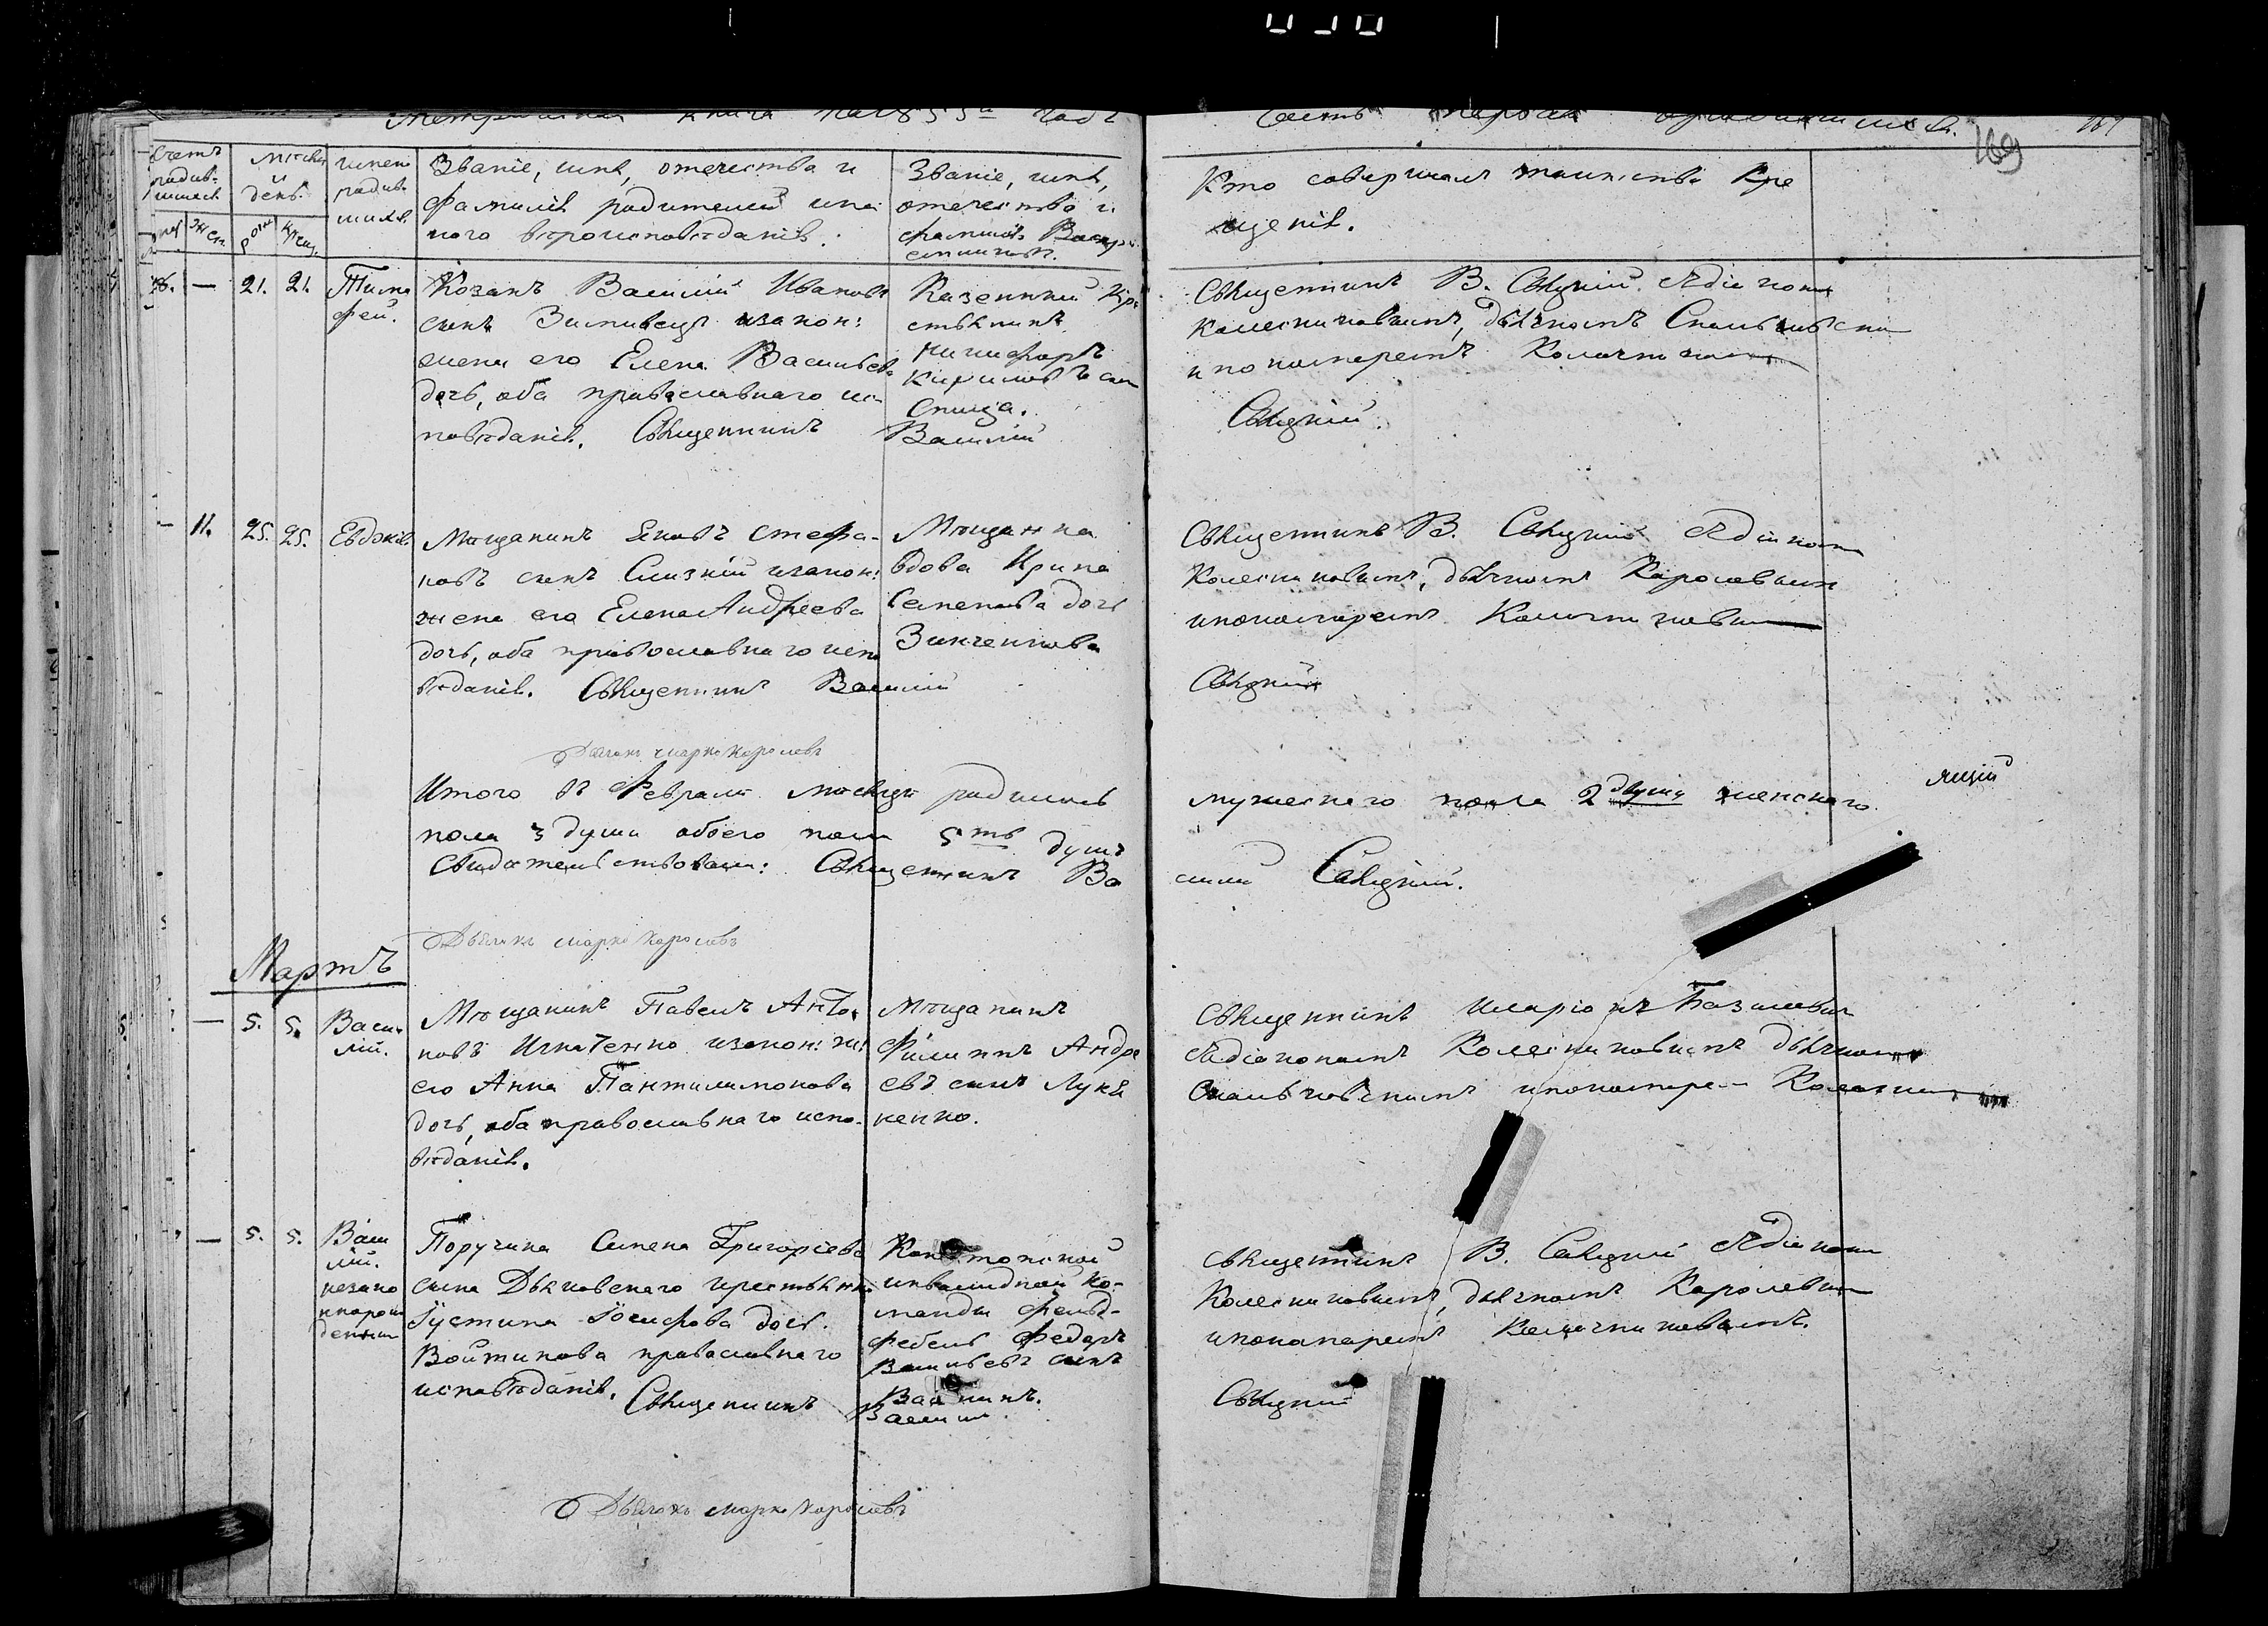 Метрическая книга на 1855й годъ
Часть первая о родившихся.
169
Счетъ родив-
шихся
Мѣсяцъ
и
день.
Имена
родив-
шихся.
Званіе, имя, отечество и
фамилія родителей и ка-
кого вѣроисповѣданія.
Званіе, имя,
отечество и
фамилія Воспрі-
емниковъ.
Кто совершалъ таинство Кре
щенія.
— 21. 21. Тимо
фей.
Козакъ Василій Ивановъ
сынъ Зимивецъ изакон:
жена его Елена Васильева
дочь, оба православнаго ис-
повѣданія. Священникъ Василій
Казенный кре
стьянинъ
Никифоръ
Кириловъ сын
Спица.
Священникъ В. Сѣцкій съ діакономъ
Колесниковымъ, дьячкомъ
и пономаремъ
Сѣцкій.
— 11. 25. 25. Евдокія
Мѣщанинъ Яковъ Стефа-
новъ сынъ Слизкій изакон:
жена его Елена Андреева
дочь, оба православнаго испо
вѣданія. Священникъ Василій
Мѣщанка
вдова Ирина
Семенова дочь
Зинченкова
Священникъ В. Сѣцкій съ діакономъ
Колесниковымъ, дьячкомъ Королевымъ
ипономаремъ
Сѣцкій
Дьячокъ Марко Королевъ
Итого въ Февралѣ мѣсяцѣ родилось
мужескаго пола 2 души женскаго
пола 3 души обоего пола 5ть душъ
Свидѣтельствовали: Священникъ Ва
силій Сѣцкій.
Дьячокъ Марко Королевъ
Мартъ
— 5. 5. Васи-
лій.
Мѣщанинъ Павелъ Анто-
новъ Игнатенко изакон: ж:
его Анна Пантилимонова
дочь, оба православнаго испо-
вѣданія.
Мѣщанинъ
Филиппъ Андре
евъ сынъ Лукя
ненко.
Священникъ Иларіонъ Базилевичъ
съ діакономъ Колесниковымъ дьячкомъ
ипономаремъ
— 5. 5. Васи
лій.
незако
ннорож
денный
Поручика Симена Григоріева
сына Дьяковскаго крестьянка
Іустина Іосифова дочь
Войтикова православнаго
исповѣданія. Священникъ Василій
Конотопской
инвалидной ко-
манды фельд-
фебель Федоръ
Васильевъ сынъ
Священникъ В. Сѣцкій съ діакономъ
Колесниковымъ, дьячкомъ Королевымъ
ипономаремъ
Сѣцкій
Дьячокъ Марко Королевъ